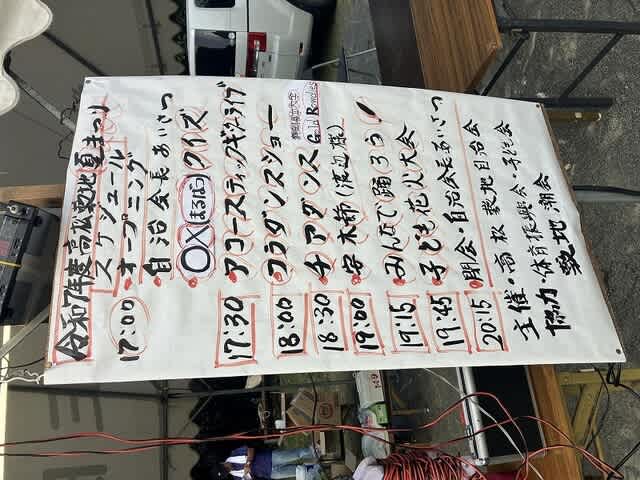 令和7年度高松敷地夏まつり
スケジュール
17:00 ・オープニング
・自治会長あいさつ
・OX まるばつ クイズ
17:30 ・アコースティックギターライブ
18:00 ・フラダンスショー
18:30 ・チアダンス 静岡県立大学 Gold
19:00 (渡辺様)
19:15 ・みんなで踊ろう!
19:45 ・子ども花火大会
20:15 ・閉会・自治会長あいさつ
主催・高松敷地自治会
協力・体育振興会・子ども会
敷地潮会